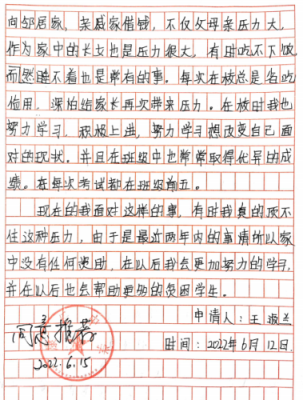 向邻居家，亲戚家借钱，不仅父母亲压力大，
作为家中的长女也是压力很大，有时吃不下饭，
而然睡不着也是常有的事。每次在校总是省吃
俭用，深怕给家长再次带来压力。在校时我也
努力学习，积极上进，努力学习想改变自己面
对的现状。并且在班级中也常常取得优异的成
绩。在每次考试都在班级前五。
现在的我面对这样的事，有时我真的顶不
住这种压力，由于是最近两年内的事情所以家
中没有任何资助，在以后我会更加努力的学习，
并在以后也去帮助更多的贫困学生。
申请人：王
同意推荐
时间：2022年6月12日
2022.6.15